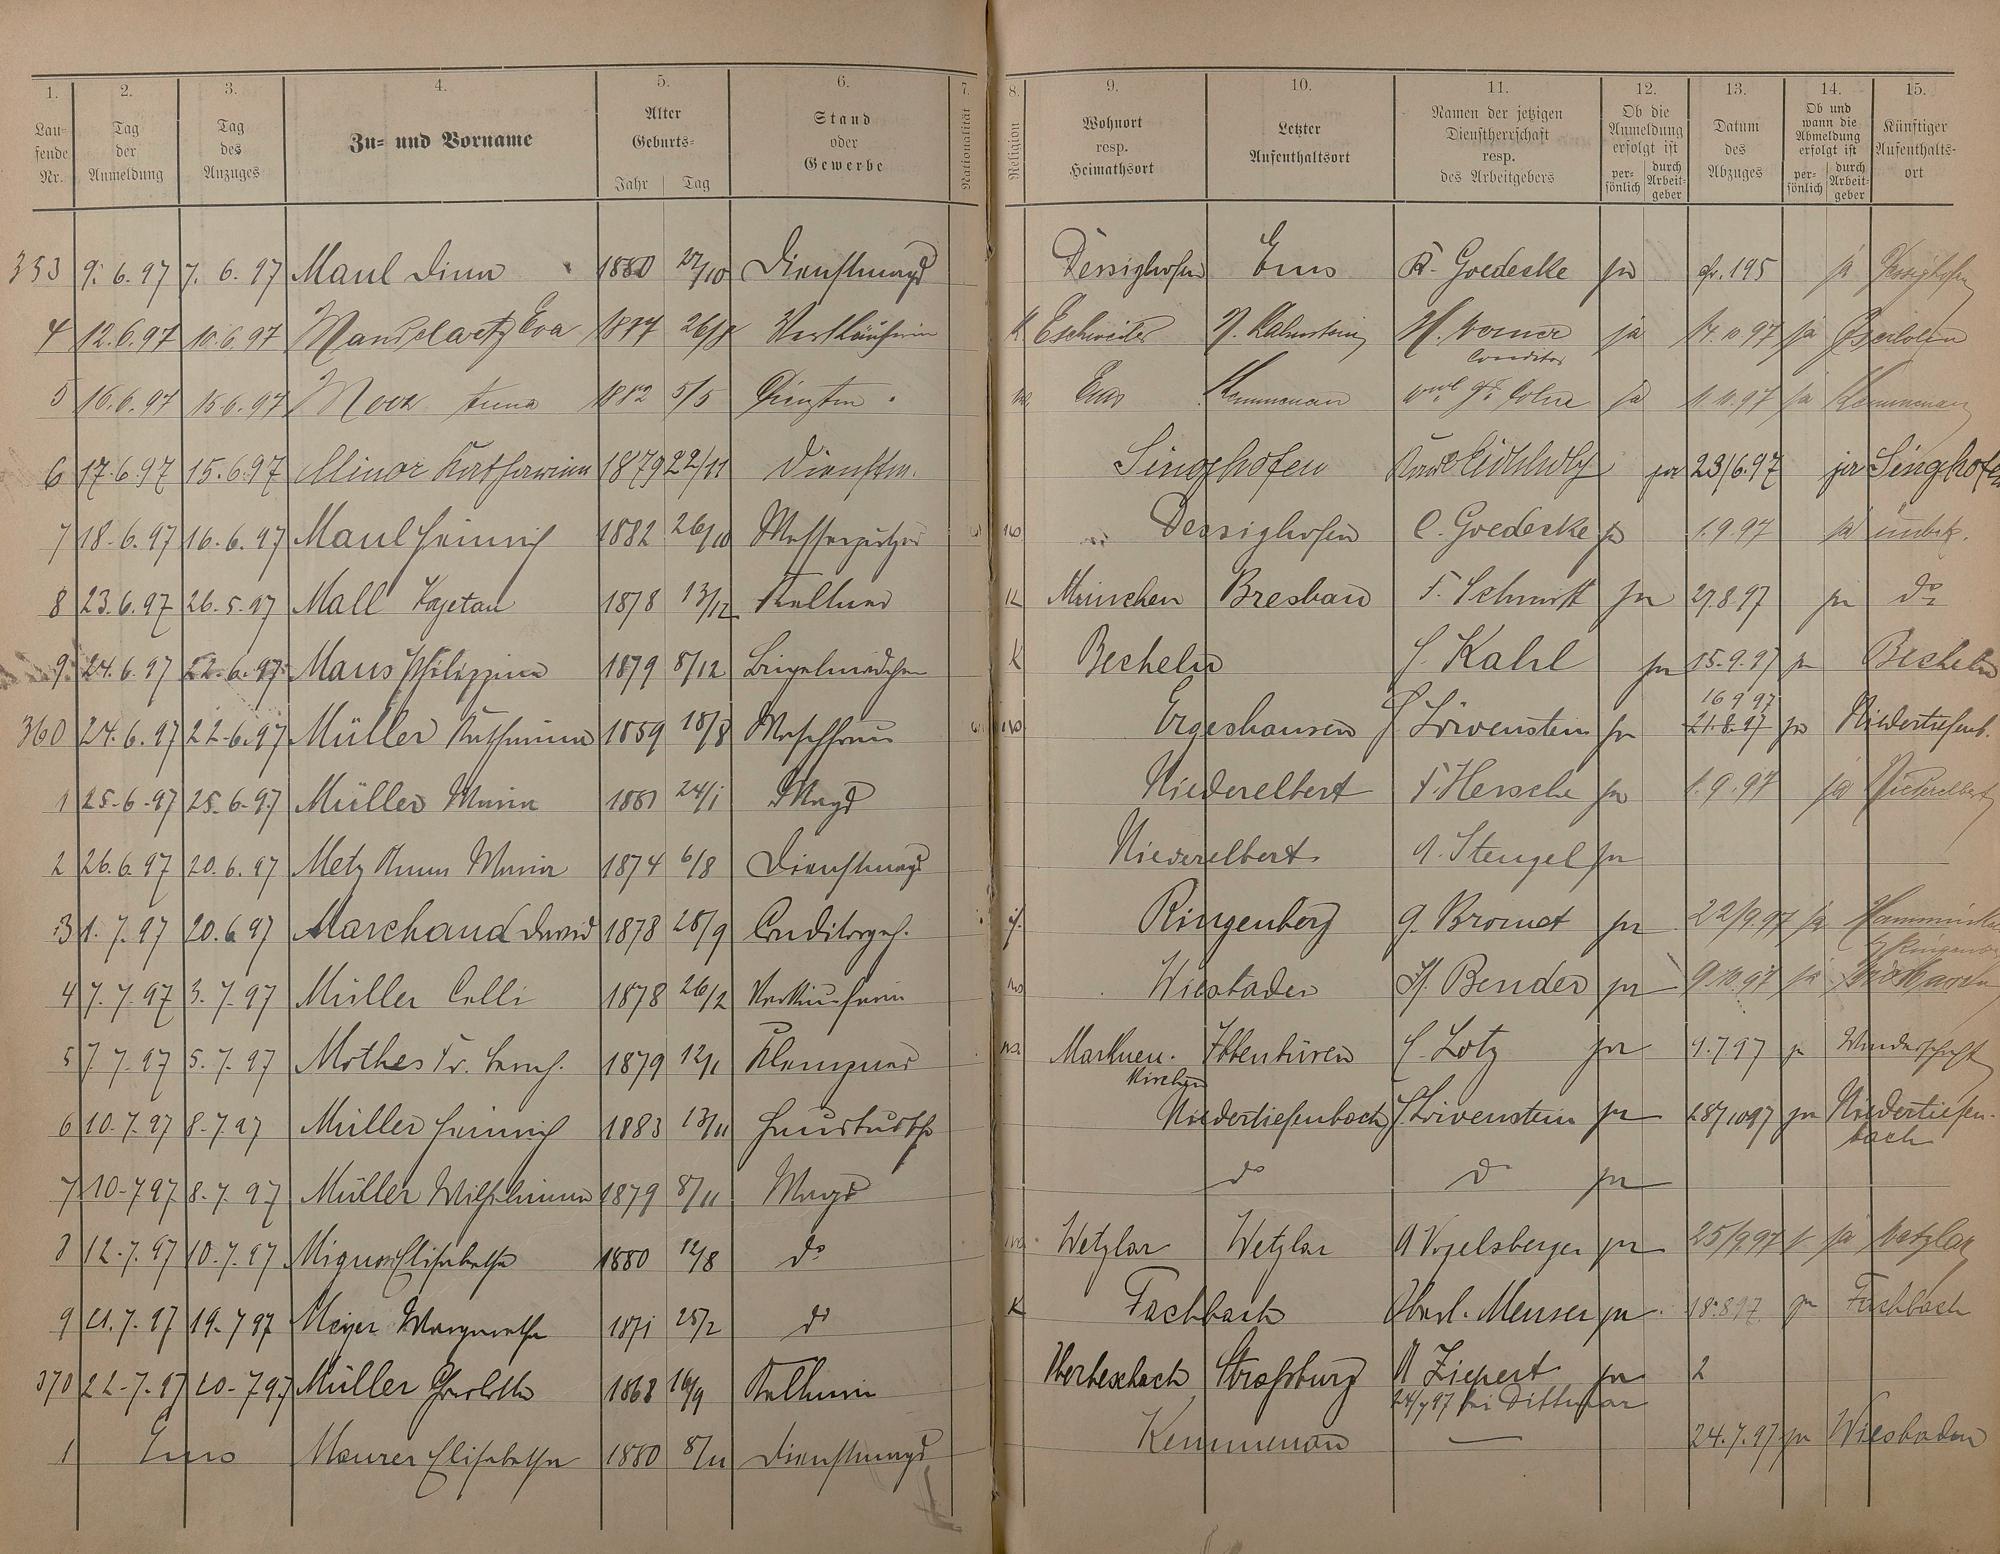 1. 2. 3. 4. 5. 6. 7. 8. 9. 10. 11. 12. 13. 14. 15.
Laufende Nr. Tag der Anmeldung Tag des Anzuges Zu- und Vorname Alter Geburts- Jahr Tag Stand oder Gewerbe Nationalität Religion Wohnort resp. Heimathsort Letzter Aufenthaltsort Namen der jetzigen Dienstherrschaft resp. des Arbeitgebers Ob die Anmeldung erfolgt ist persönlich durch Arbeitgeber Datum des Abzuges Ob und wann die Abmeldung erfolgt ist persönlich durch Arbeitgeber Künftiger Aufenthaltsort
353 9. 6. 97 7. 6. 97 Maul Dina 1880 27/10 Dienstmagd Dessighofen Ems R. Goedecke ja cfr. 195 ja Dessighofen
4 12.6.97 10.6.97 Eva 1877 Verkäuferin K Eschweiler N. Lahnstein H. Conditor ja 14.10.97 ja
5 16.6.97 15.6.97 Anna 1882 5/5 Dienstm. Ems Kemmenau ja 11.10.97 ja Kemmenau
6 17.6.97 15.6.97 Minor Katharina 1879 22/11 Dienstm. Singhofen ja 23/6.97 ja Singhofen
7 18.6.97 16.6.97 Maul Heinrich 1882 26/10 Messerputzer Dessighofen C. Goedecke ja 1.9.97 ja unbek.
8 23.6.97 26.5.97 Mall Kajetan 1878 13/12 Kellner K München Breslau F. Schmitt ja 27.8.97 ja do
9 24.6.97 22.6.97 Maus Philippina 1879 8/12 Bügelmädchen K Becheln Kahl ja 15.9.97 ja Becheln
16 9 97
360 24.6.97 22.6.97 Müller Katharina 1859 18/8 Waschfrau Ergeshausen Löwenstein ja 21.8.97 ja Niedertiefenb.
1 25.6.97 25.6.97 Müller Maria 1881 24/1 Magd Niederelbert F. Hersche ja 1.9.97 ja Niederelbert
2 26.6.97 20.6.97 Metz Anna Maria 1874 6/8 Dienstmagd Niederelbert A. Stengel ja
3 1.7.97 20.6.97 Marchand David 1878 28/9 Conditorgeh. Ringenberg G. Bromet ja 22/9.97 ja
4 7.7.97 3.7.97 Müller Celli 1878 26/2 Verkäuferin Wiesbaden H. Bender ja 9.10.97 ja
5 7.7.97 5.7.97 Mothes Fr. 1879 12/1 Klempner Marknen- Ibbenbüren Lotz ja 9.7.97 ja Wanderschaft
kirchen
6 10.7.97 8.7.97 Müller Heinrich 1883 13/11 Hausbursche Niedertiefenbach Löwenstein ja 28/10 97 ja Niedertiefen-
bach
7 10.7.97 8.7.97 Müller Wilhelmina 1879 8/11 Magd do do ja
8 12.7.97 10.7.97 Mignon Elisabetha 1880 12/8 do Wetzlar Wetzlar A Vogelsberger ja 25/9.97 ja Wetzlar
9 21.7.97 19.7.97 Meyer Margaretha 1871 25/2 do K Fachbach Meuser ja 18.8.97 ja Fachbach
370 22.7.97 20.7.97 Müller Charlotte 1868 16/9 Kellnerin Straßburg A Ziepert ja 2
24/7 97 bei Dittmar
1 Ems Maurer Elisabetha 1880 8/11 Dienstmagd Kemmenau — 24.7.97 ja Wiesbaden